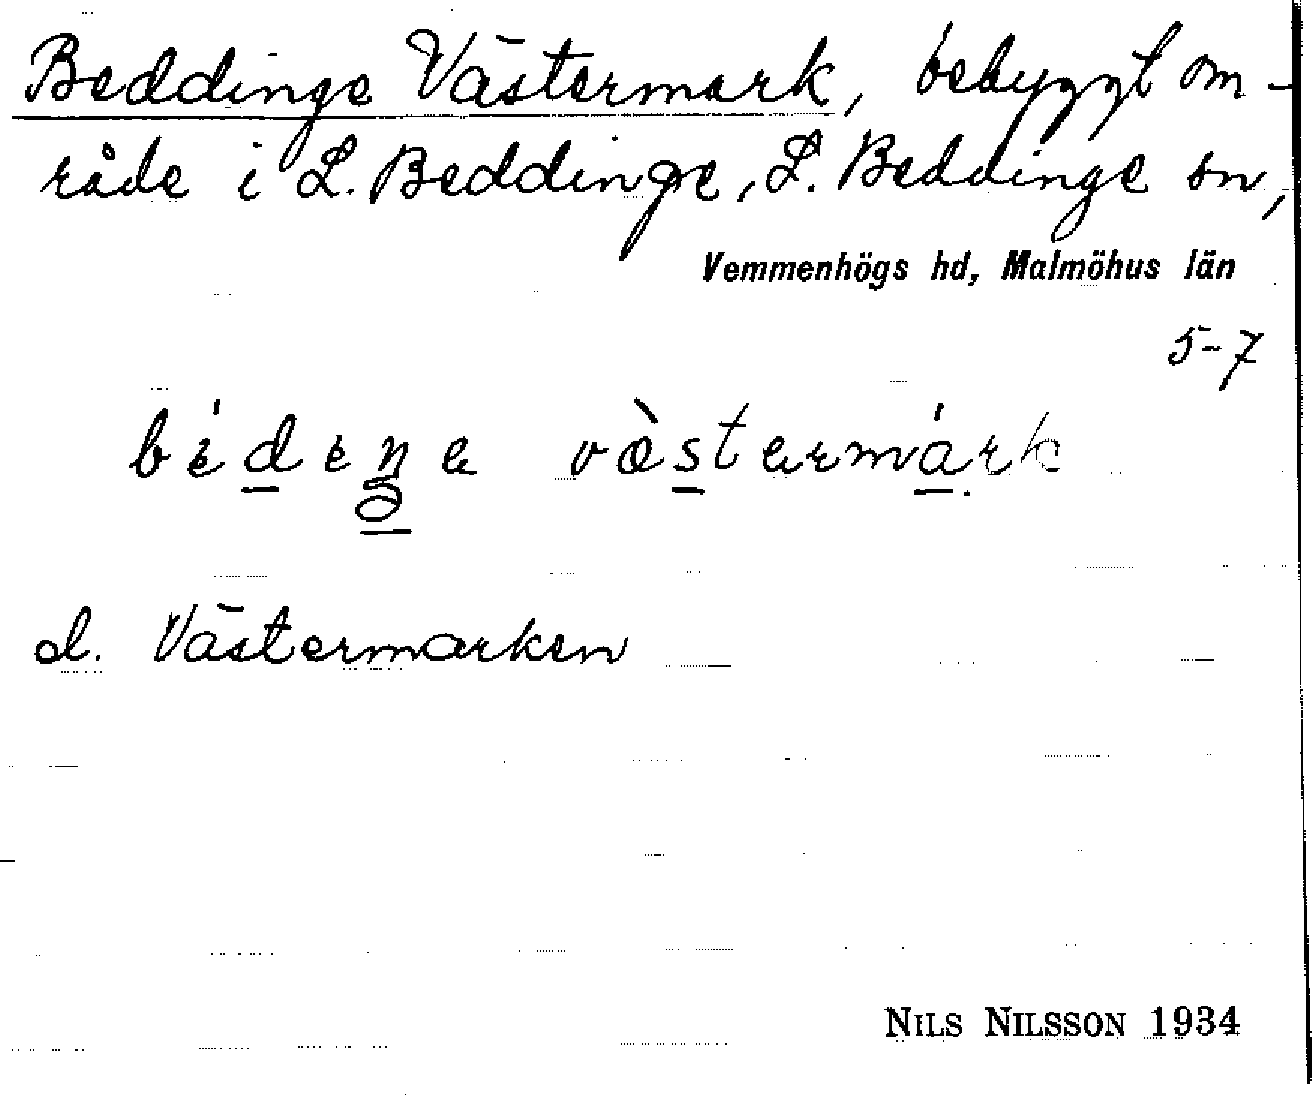 Beddinge Västermark, bebyggt om-
råde i L. Beddinge, L. Beddinge sn,
Vemmenhögs hd, Malmöhus län
5-7
d. Västermarken
NILS NILSSON 1934